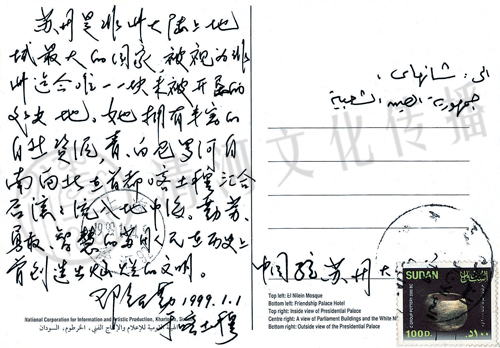 苏丹是非洲大陆上地
域最大的国家,被视为非
洲迄今唯一一块未被开垦的
处女地。她拥有丰富的
自然资源,青、白尼罗河自
南向北在首都喀土穆汇合
后流入地中海。勤劳、
勇敢、智慧的苏丹人民在历史上
曾创造出灿烂的文明。
1999.1.1
于喀土穆
الى: شانغهاى،
جمهورية الصين الشعبية
中国驻苏丹大
SUDAN
السودان
C GROUP POTTERY 2000 BC
100D.
Top left: El Nilein Mosque
Bottom left: Friendship Palace Hotel
Top right: Inside view of Presidential Palace
Centre right: A view of Parliament Buildings and the White N
Bottom right: Outside view of the Presidential Palace
National Corporation for Information and Artistic Production, Khartoum, Sudan
للإعلام والإنتاج الفني، الخرطوم، السودان
文化传播